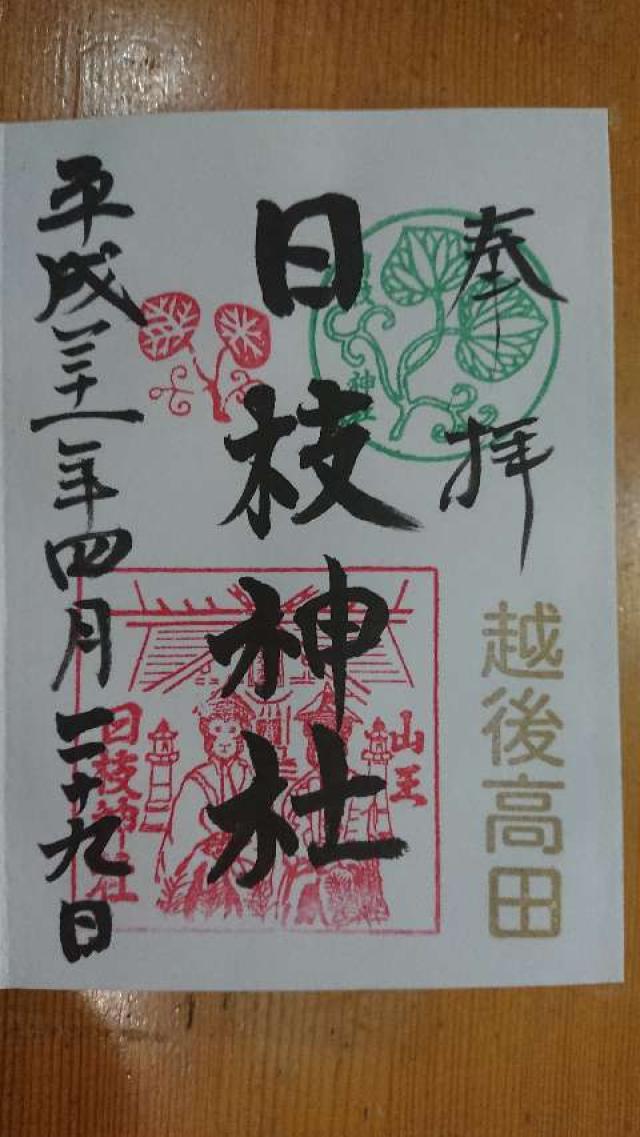 奉拝
越後高田
日枝神社
山王
日枝神社
平成三十一年四月二十九日